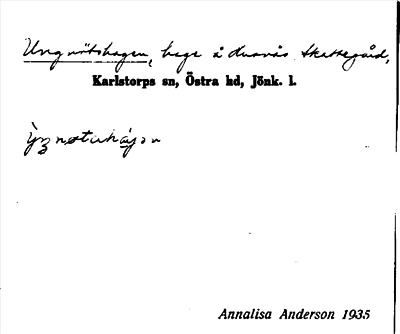 Ungnötshagen, hage å Äusvås Skattegård,
Karlstorps sn, Östra hd, Jönk. l.
Annalisa Anderson 1935